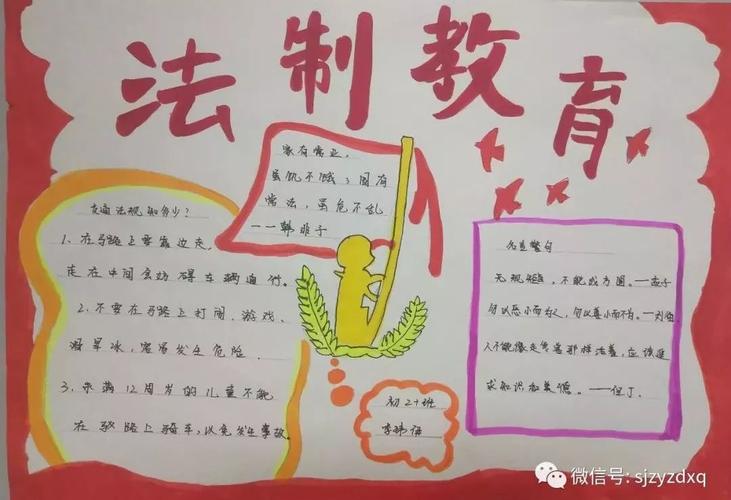 法制教育
家有常业,
虽饥不饿;国有
常法,虽危不乱
——韩非子
交通法规知多少?
1、在马路上要靠边走,
走在中间会妨碍车辆通行。
2、不要在马路上打闹、游戏、
溜旱冰,容易发生危险.
3、未满12周岁的儿童不能
在马路上骑车,以免发生事故。
名言警句
无规矩,不能成方圆。——孟子
勿以恶小而为之,勿以善小而不为。——刘备
人不能像走兽那样活着,应该追
求知识和美德。——但丁
初21班
李
微信号: sjzyzdxq